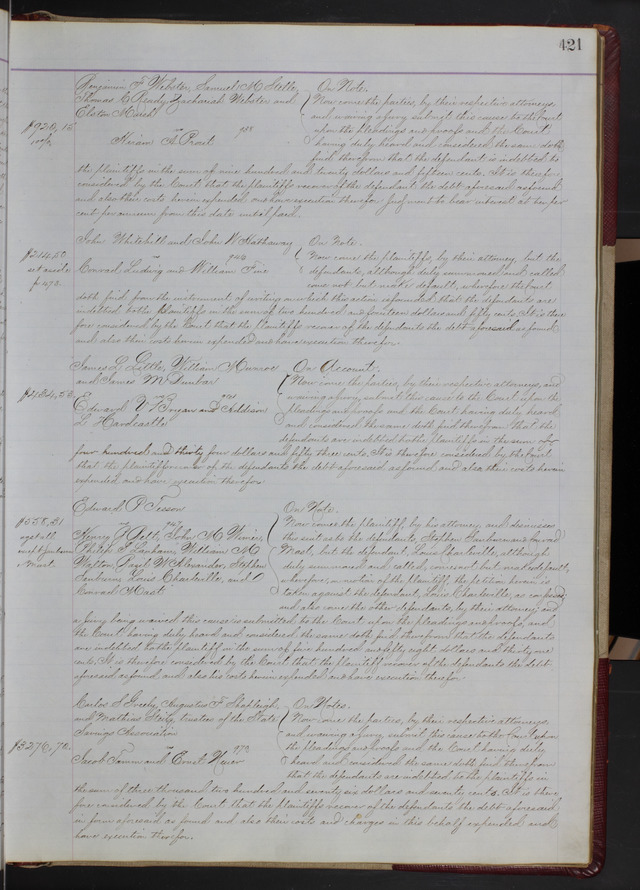 421
Benjamin F Webster, Samuel M Steller On Note.
Thomas C Ready Zachariah Webster and Now come the parties, by their respective attorneys
Elston Marsh and waiving a jury submit this cause to the Court
$920,15 vs upon the pleadings and proofs and the Court
Hiram A Prout having duly heard and considered the same doth
find therefrom that the defendant is indebted to
the plaintiffs in the sum of nine hundred and twenty dollars and fifteen cents. It is therefore
considered by the Court that the plaintiffs recover of the defendant the debt aforesaid as found
and also their costs herein expended and have execution therefor. Judgment to bear interest at ten per
cent per annum from this date until paid.
John Whitehill and John W Hathaway On Note.
$214,50 vs Now come the plaintiffs, by their attorney, but the
set aside Conrad Ludwig and William Fine defendants, although duly summoned and called
p 472. come not but make default, wherefore the Court
doth find from the instrument of writing on which this action is founded that the defendants are
indebted to the plaintiffs in the sum of two hundred and fourteen dollars and fifty cents. It is there
fore considered by the Court that the plaintiffs recover of the defendants the debt aforesaid as found
and also their costs herein expended and have execution therefor.
James L Little, William Monroe On Account.
and James M Dunbar Now come the parties, by their respective attorneys, and
$434,53 vs waiving a jury, submit this cause to the Court upon the
Edward Bryan and Addison pleadings and proofs and the Court having duly heard
L Hardcastle and considered the same doth find therefrom that the
defendants are indebted to the plaintiffs in the sum of
four hundred and thirty four dollars and fifty three cents. It is therefore considered by the Court
that the plaintiffs recover of the defendants the debt aforesaid as found and also their costs herein
expended and have execution therefor.
Edward P Tesson On Note.
$558,31 vs Now comes the plaintiff, by his attorney, and dismisses
Henry J John M Wimer, this suit as to the defendants, Stephen and Conrad
Philip T Lanham, William M Mast, but the defendant, Louis Charleville, although
Walton, Basil W Alexander, Stephen duly summoned and called, comes not but makes default,
Louis Charleville, and wherefore, on motion of the plaintiff, the petition herein is
Conrad Mast taken against the defendant, Louis Charleville, as confessed
and also come the other defendants, by their attorney, and
a jury being waived this cause is submitted to the Court upon the pleadings and proofs, and
the Court having duly heard and considered the same doth find therefrom that the defendants
are indebted to the plaintiff in the sum of five hundred and fifty eight dollars and thirty one
cents. It is therefore considered by the Court that the plaintiff recover of the defendants the debt
aforesaid as found, and also his costs herein expended and have execution therefor.
Carlos S Greely, Augustus F Shapleigh On Notes.
and Mathias Steitz, trustees of the State Now come the parties, by their respective attorneys,
Savings Association and waiving a jury, submit this cause to the Court upon
$3276,70. vs the pleadings and proofs and the Court having duly
Jacob and Ernst heard and considered the same doth find therefrom
that the defendants are indebted to the plaintiffs in
the sum of three thousand two hundred and seventy six dollars and seventy cents. It is there
fore considered by the Court that the plaintiffs recover of the defendants the debt aforesaid
in form aforesaid as found and also their costs and charges in this behalf expended and
have execution therefor.